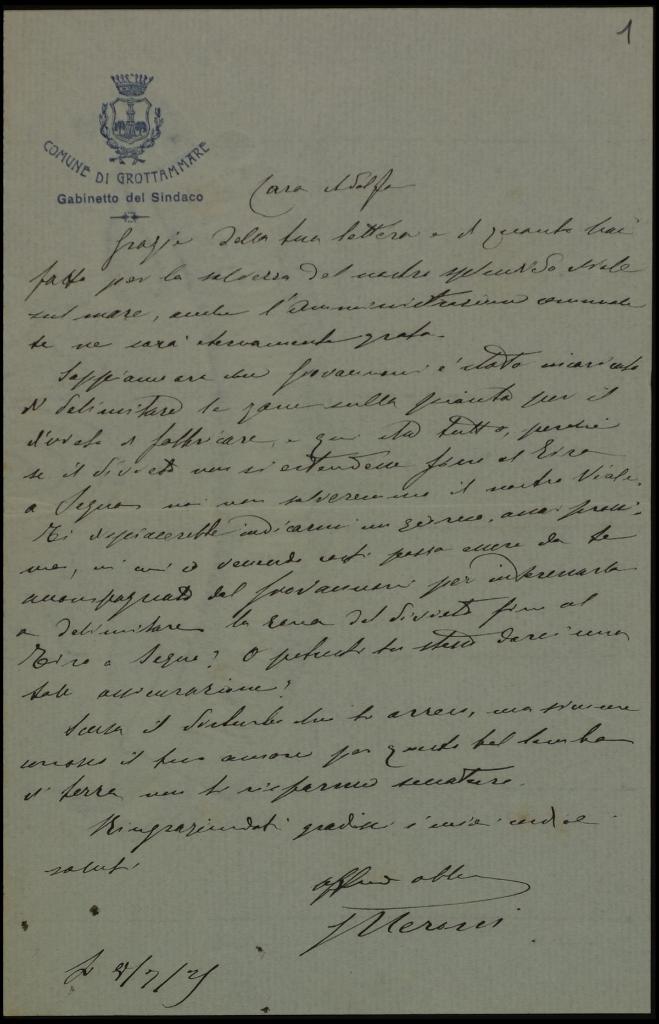 1
COMUNE DI GROTTAMMARE
Gabinetto del Sindaco
Caro Adolfo
Grazie della tua lettera e di quanto hai
fatto per la salvezza del nostro splendido viale
sul mare, anche l'Amministrazione comunale
te ne sarà eternamente grata.
Sappiamo ora che Giovannoni è stato incaricato
di delimitare la zona sulla pianta per il
divieto di fabbricare, e qui sta tutto, perché
se il divieto non si estendesse fino al Tiro
a Segno noi non salveremmo il nostro Viale.
Ti dispiacerebbe indicarmi un giorno, assai prossi-
mo, in cui venendo costì possa essere da te
accompagnato dal Giovannoni per interessarlo
a delimitare la zona del divieto fino al
Tiro a Segno? O potresti tu stesso darci una
tale assicurazione?
Scusa il disturbo che ti arreco, ma siccome
conosco il tuo amore per questo bel lembo
di terra non ti risparmio seccature.
Ringraziandoti gradisci i miei cordiali
saluti
affmo obbmo
8/7/25